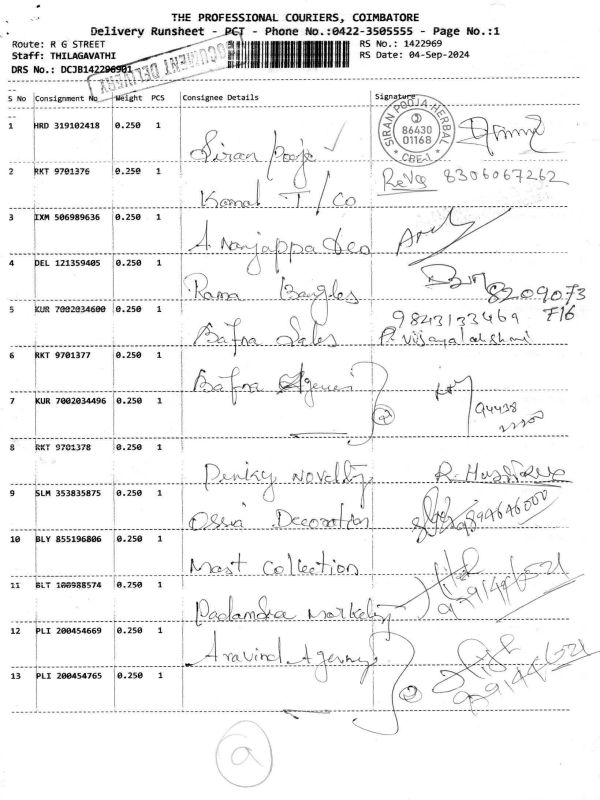 THE PROFESSIONAL COURIERS, COIMBATORE
Delivery Runsheet - PCT - Phone No.:0422-3505555 - Page No.:1
Route: R G STREET RS No.: 1422969
Staff: THILAGAVATHI RS Date: 04-Sep-2024
DRS No.: DCJB142296901
DOCUMENT DELIVERY
S No Consignment No Weight PCS Consignee Details Signature
1 HRD 319102418 0.250 1 Siran Pooja
SIRAN POOJA HERBAL
86430
01168
CBE-1
2 RKT 9701376 0.250 1 Kamal T/Co 8306067262
3 IXM 506989636 0.250 1 A Nanjappa &co
4 DEL 121359405 0.250 1 Rama Bangles 8209073
716
5 KUR 7002034600 0.250 1 Bafna Sales 9843133469
P. Vijayalakshmi
6 RKT 9701377 0.250 1 Bafna Agencies
7 KUR 7002034496 0.250 1 2 94438
8 RKT 9701378 0.250 1 Novelty
9 SLM 353835875 0.250 1 Ossia Decoration
10 BLY 855196806 0.250 1 Mast Collection
11 BLT 100988574 0.250 1 Marketing
12 PLI 200454669 0.250 1 Aravind Agency
13 PLI 200454765 0.250 1 2
a